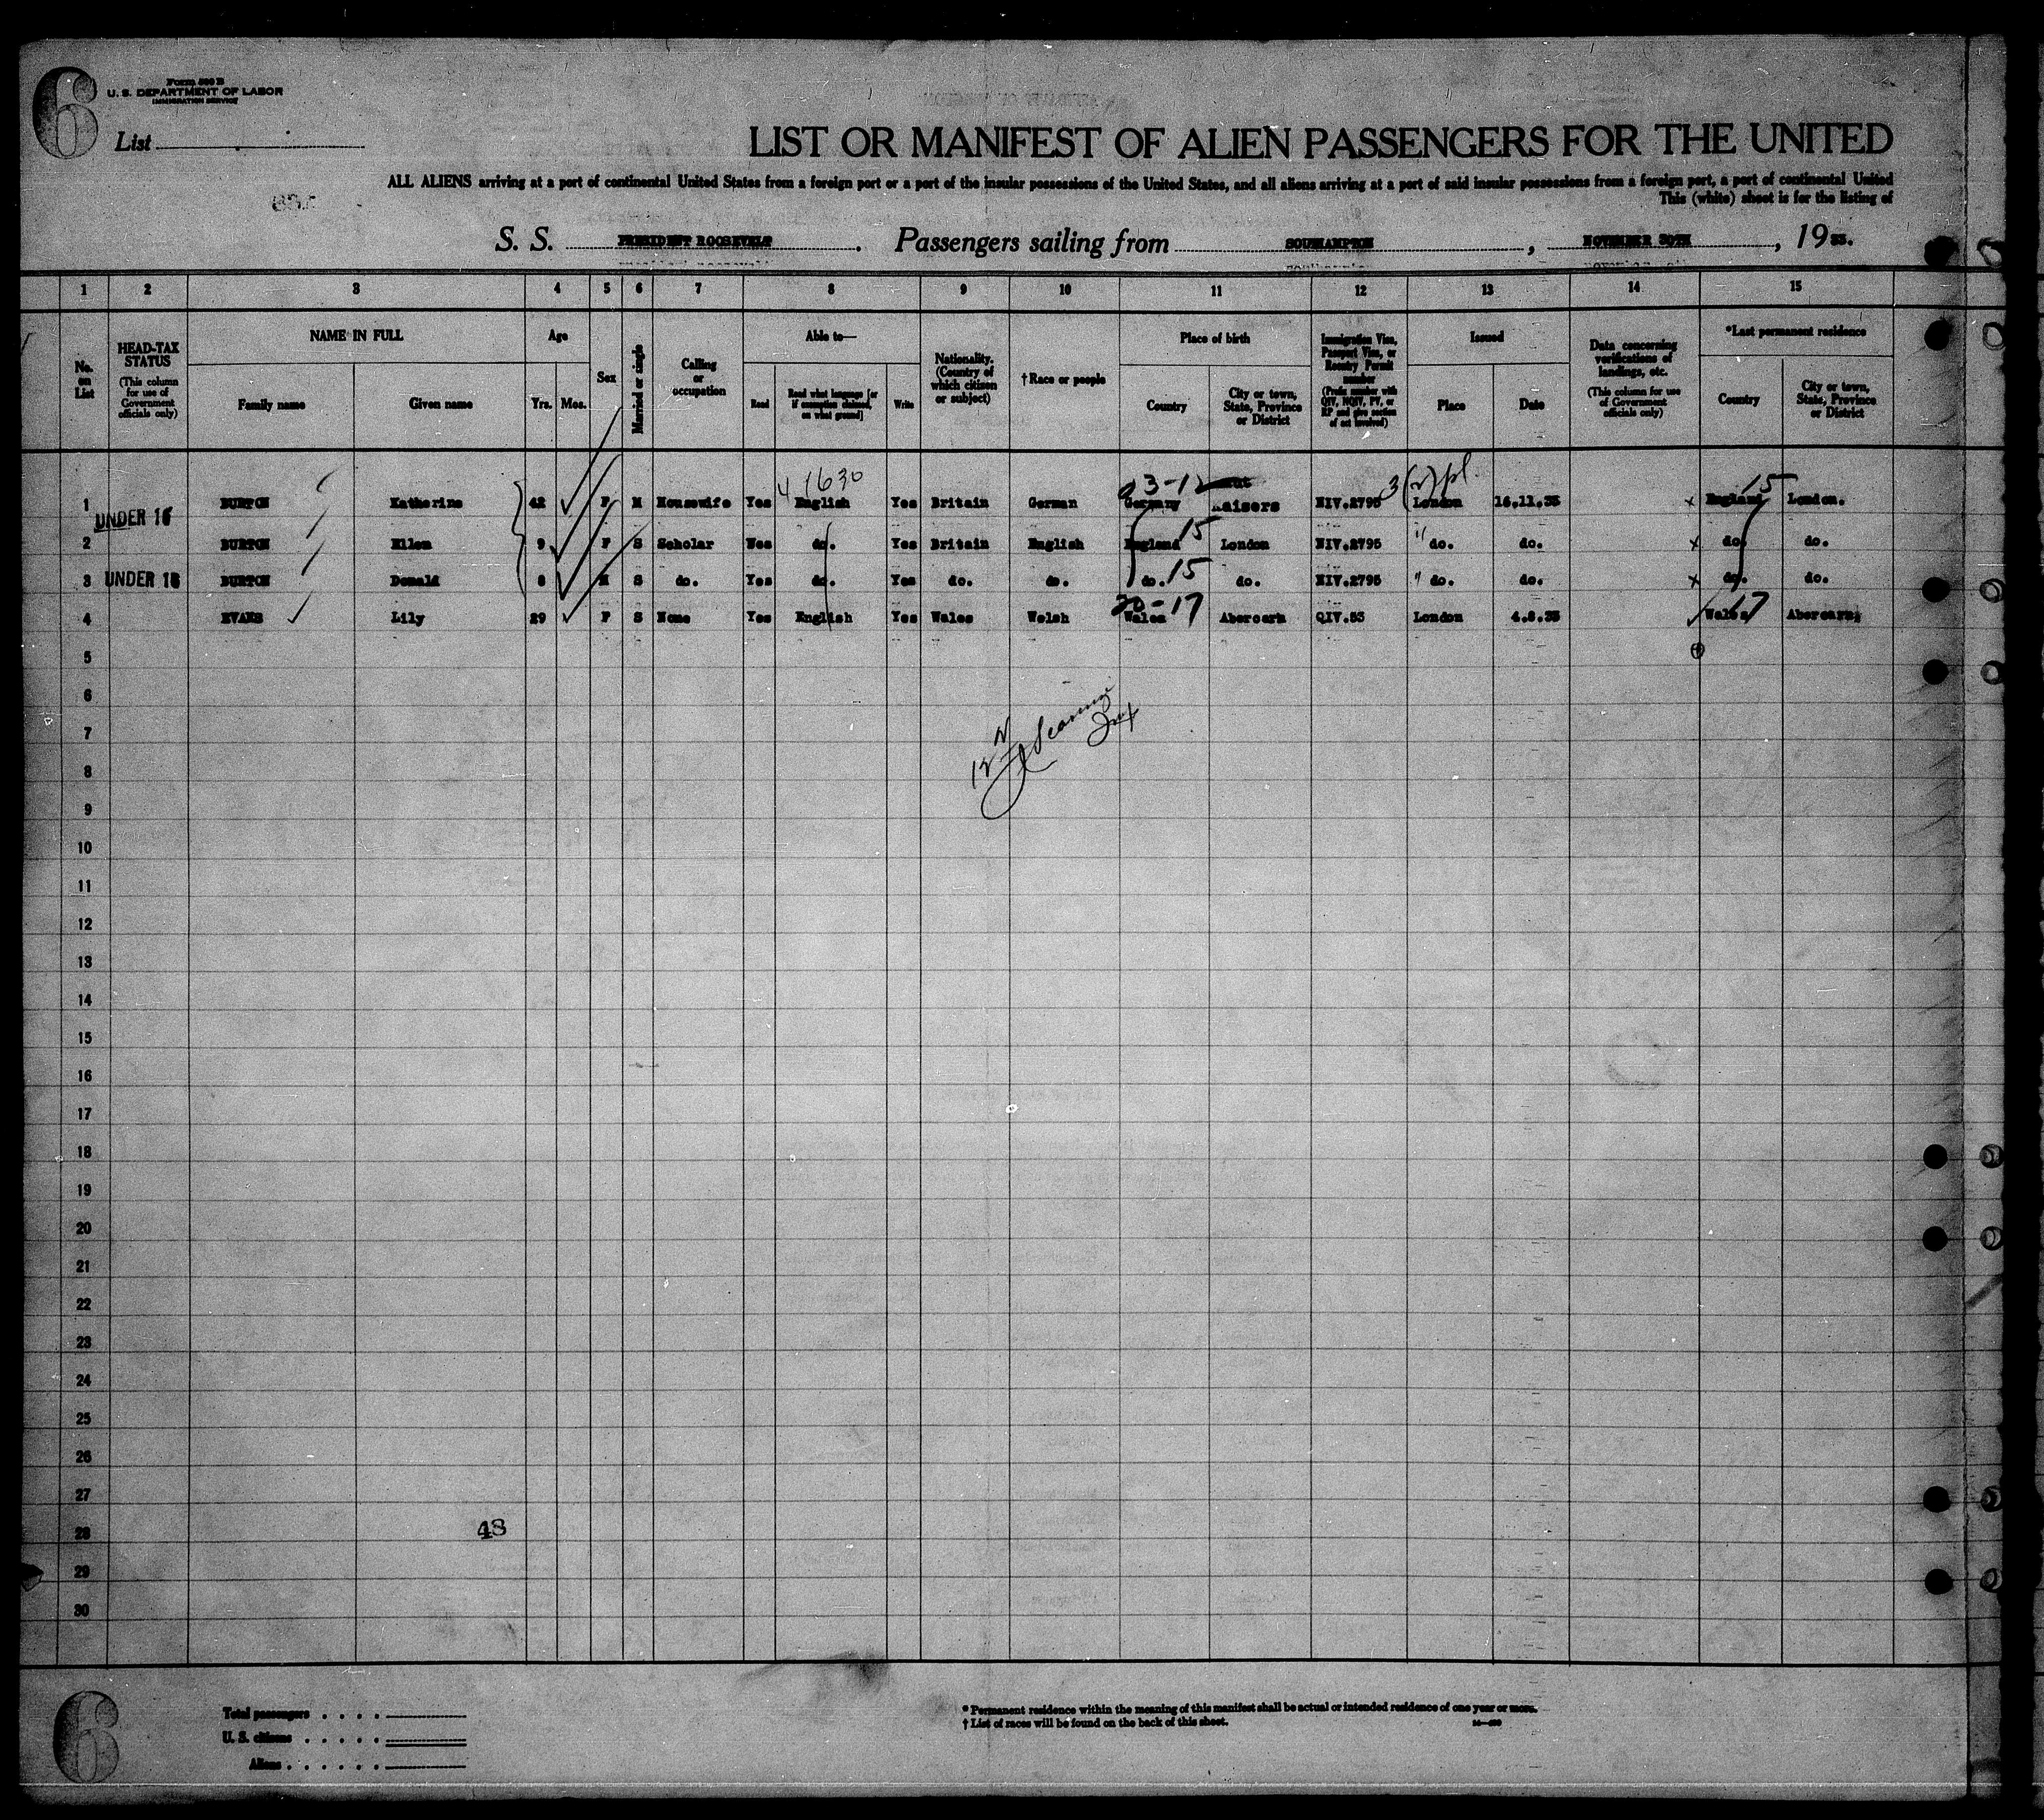 6
Form 500 B
U. S. DEPARTMENT OF LABOR
IMMIGRATION SERVICE
List
LIST OR MANIFEST OF ALIEN PASSENGERS FOR THE UNITED
ALL ALIENS arriving at a port of continental United States from a foreign port or a port of the insular possessions of the United States, and all aliens arriving at a port of said insular possessions from a foreign port, a port of continental United
This (white) sheet is for the listing of
S. S. PRESIDENT ROOSEVELT. Passengers sailing from SOUTHAMPTON, NOVEMBER 30TH, 1933.
1 2 3 4 5 6 7 8 9 10 11 12 13 14 15
No. on List
HEAD-TAX STATUS (This column for use of Government officials only)
NAME IN FULL
Family name Given name
Age
Yrs. Mos.
Sex
Married or single
Calling or occupation
Able to—
Read Read what language [or if exemption claimed, on what ground] Write
Nationality. (Country of which citizen or subject)
†Race or people
Place of birth
Country City or town, State, Province or District
Immigration Visa, Passport Visa, or Reentry Permit number (Prefix number with QIV, NQIV, PV, or RP and give section of act involved)
Issued
Place Date
Data concerning verifications of landings, etc. (This column for use of Government officials only)
*Last permanent residence
Country City or town, State, Province or District
4 1630 3-12 3(2)pl. 15
1 BURTON Katherine 42 F M Housewife Yes English Yes Britain German Germany NIV.2795 London 16.11.33 x England London.
UNDER 16
2 BURTON Ellen 9 F S Scholar Yes do. Yes Britain English England 15 London NIV.2795 " do. do. x do. do.
3 UNDER 16 BURTON Donald 8 M S do. Yes do. Yes do. do. do. 15 do. NIV.2795 " do. do. x do. do.
20-17
4 EVANS Lily 29 F S None Yes English Yes Wales Welsh Wales Abercarn QIV.53 London 4.8.33 Wales 17 Abercarn.
5
6
7
8
9
10
11
12
13
14
15
16
17
18
19
20
21
22
23
24
25
26
27
28 48
29
30
6
Total passengers
U. S. citizens
Aliens
* Permanent residence within the meaning of this manifest shall be actual or intended residence of one year or more.
† List of races will be found on the back of this sheet.